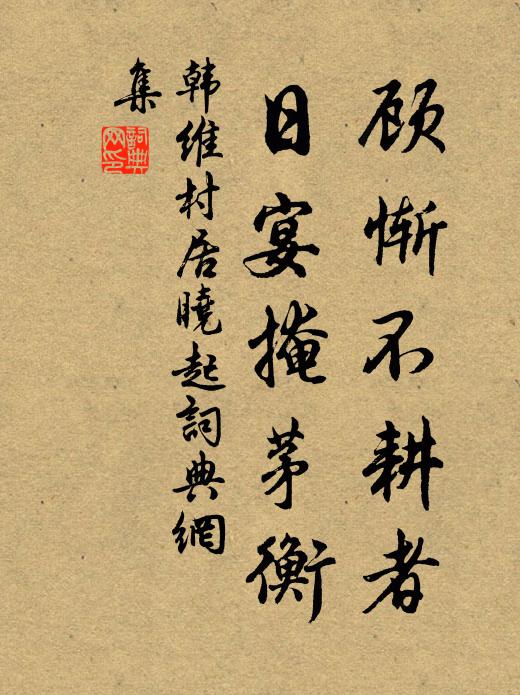 顾惭不耕者
日宴掩茅衡
韩维村居曉起詞典網
集
詞典网印